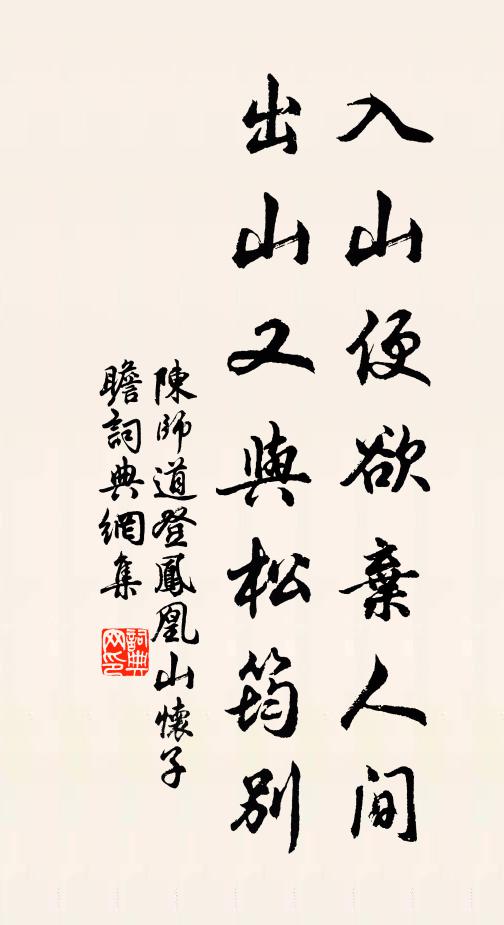 入山便欲棄人间
出山又與松筠别
陳師道登鳳凰山懷子
瞻詞典網集
詞典
网印